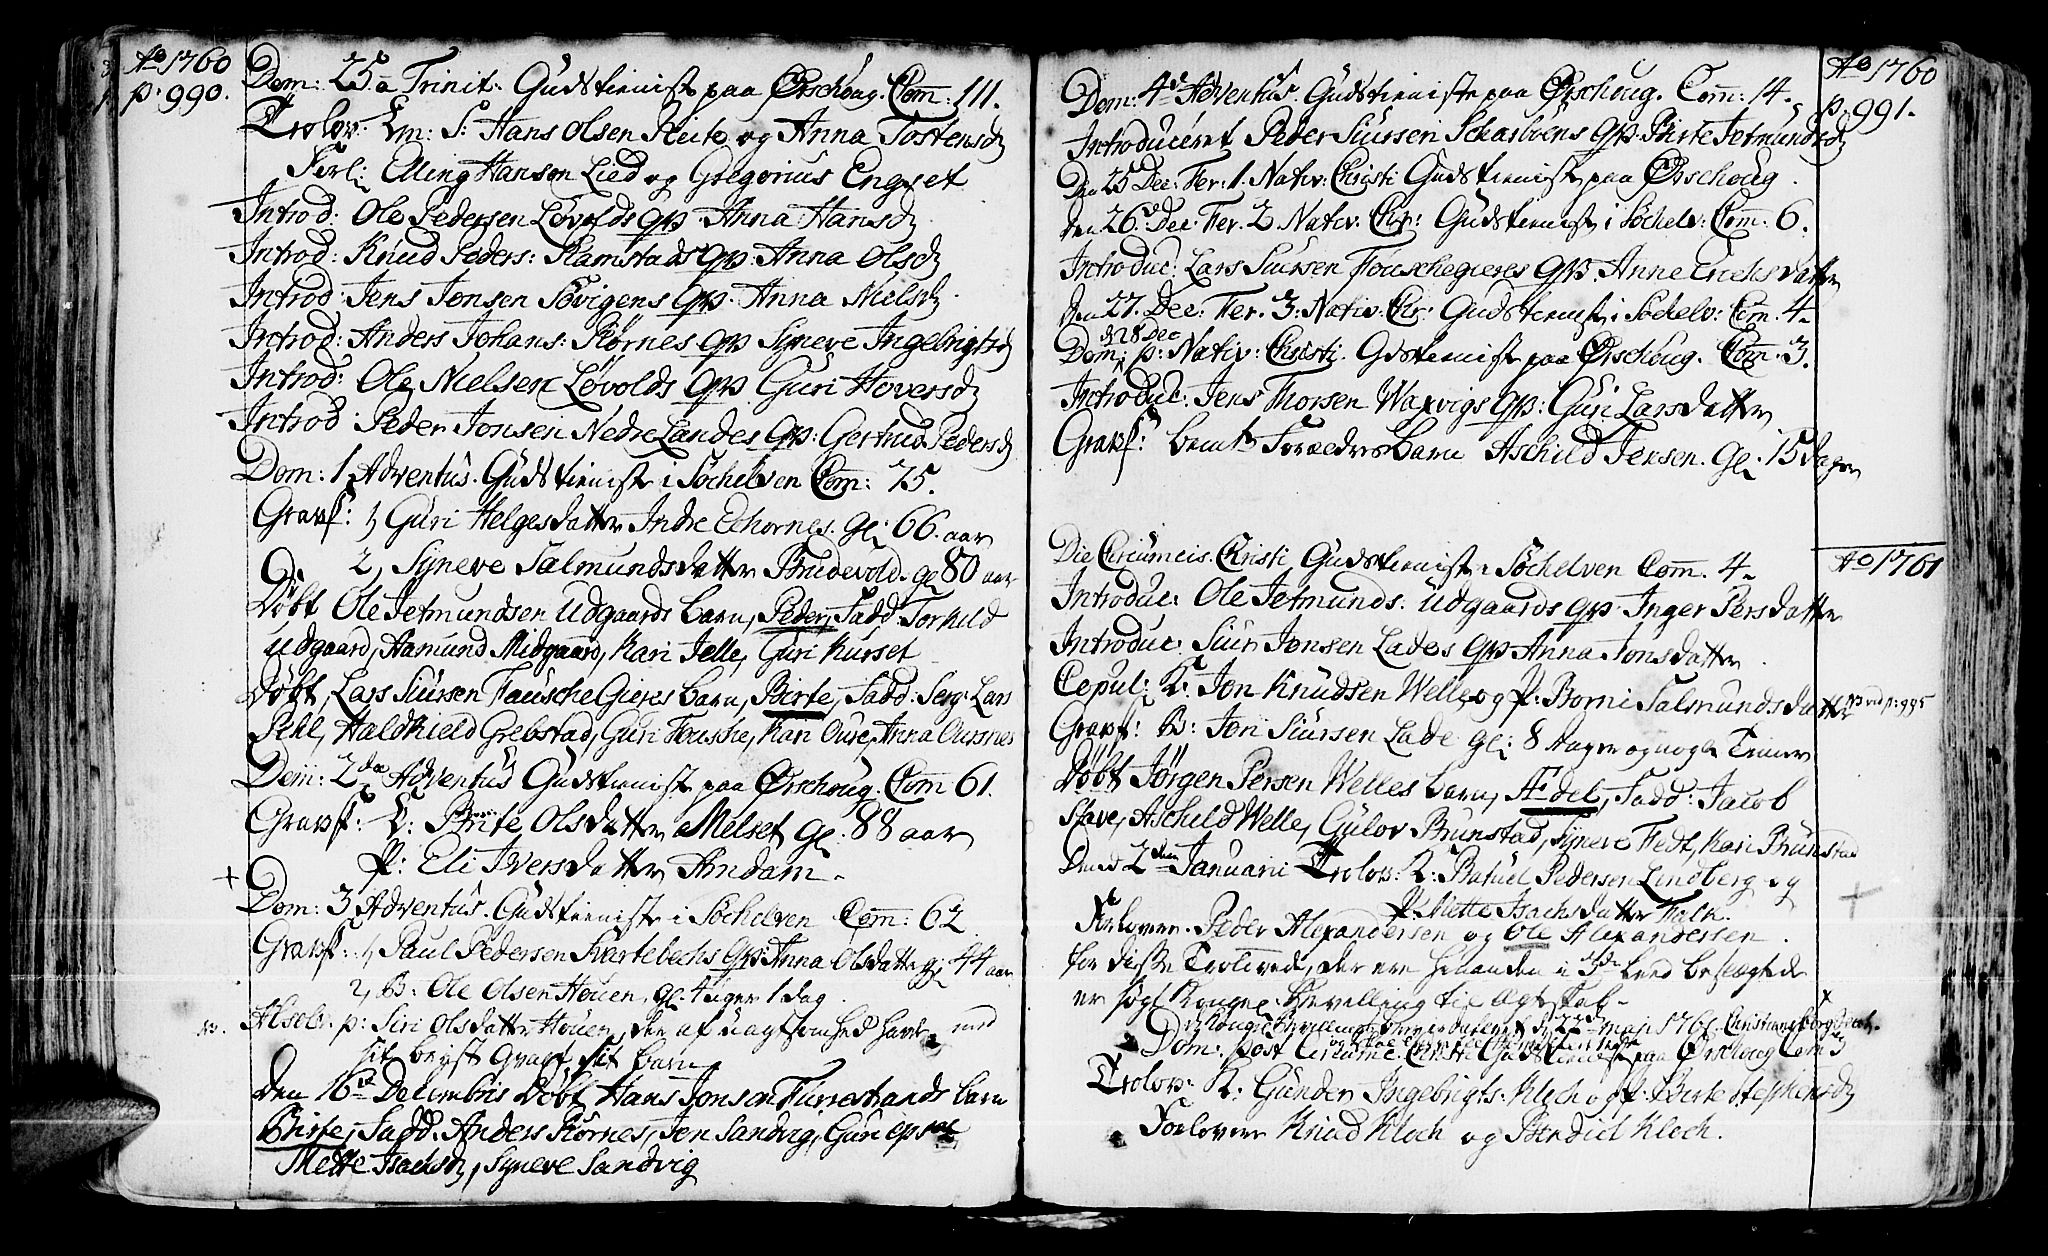 Ao 1760
p. 990.
Dom: 25 a Trinit: Gudstienist paa Ørschoug. Com: 111.
Trolov: Em: S: Hans Olsen Reite og Anna Tostensd
Forl: Elling Hansøn Lied og Gregorius Engset
Introd: Ole Pedersen Løvolds qvi: Anna Hansd
Introd: Knud Peders: Ramstads qvi: Anna Olsd
Introd: Jens Jonsen Søvigens qvi: Anna Nielsd
Introd: Anders Johans: Rørnes qvi Syneve Ingebrigtsd
Introd: Ole Nielsen Løvolds qvi Guri Hoversd
Introd: Peder Jonsen Nedre Landes qvi: Gertrud Pedersd
Dom: 1 Adventus. Gudstienist i Søchelven Com: 75.
Gravf: 1, Guri Helgesdatter Indre Echornes. gl: 66. aar
2, Syneve Salmundsdatter Brudevold. gl 80 aar
Døbt Ole Jetmundsen Udgaards barn, Peder, Fadd: Torkild
Udgaard, Aamund Midgaard, Kari Jelle, Guri Kurset
Døbt, Lars Siursen Fausche Gieres barn, Birte, Fadd: Serg: Lars
Pehl, Haldkield Grebstad, Guri Fousche, Kari Oure, Anna Oursnes
Dom: 2da Adventus Gudstienist paa Ørschoug. Com 61.
Gravf: E: Brite Olsdatter Melset gl: 88 aar
P: Eli Iversdatter Amdam.
+
Dom: 3 Adventus. Gudstienist i Søchelven Com: 62
Gravf: 1, Paul Pedersen Svartebechs qvi: Anna Olsdatter gl 44 aar
2, B: Ole Olsen Houen, gl. 4 uger 1 dag.
NB. Absolv. p: Siri Olsdatter Houen, der af uagtsomhed havde med
sit bryst qvalt sit barn
den 16de Decembris Døbt Hans Jonsen Furestrands barn
Birte, Fadd. Anders Rørnes, Jon Sandvig, Guri
Mette Isachsd, Syneve Sandvig
Ao 1760
p. 991.
Dom: 4de Adventus. Gudstieniste paa Ørschoug. Com: 14.
Introduceret Peder Siursen Scharboens qvi: Birte Jetmundsd
Den 25 Dec: Fer: 1. Nativ: Christi Gudstienist paa Ørschoug.
den 26de Dec: Fer. 2 Nativ: Chr: Gudstienist i Søchelv: Com: 6.
Introduc: Lars Siursen Fouschegieres qvi: Anne Erichsdatter
den 27. Dec: Fer. 3: Nativ: Chr: Gudstienist i Søchelv: Com: 4
d. 28 Dec
Dom: p: Nativ: Christi. Gudstienist paa Ørschoug. Com: 3.
Introduc: Jens Morsen Waxvigs qvi: Guri Larsdatter
Gravf: bemte Foræedres Barn Aschild Jensen. gl: 15 dage
Ao 1761
Die Circumcis. Christi Gudstienist i Søchelven Com. 4
Introduc: Ole Jetmunds. Udgaards qvi: Inger Persdatter
Introduc: Siur Jonsen Lades qvi Anna Jonsdatter.
Copul: K: Jon Knudsen Welle og P: Borni Salmundsdatter NB vid p: 995
Gravf: B: Jon Siursen Lade gl: 8 dager og nogle Timer
Døbt Jørgen Persen Welles barn, Ædel, Fadd: Jacob
Slave, Aschild Welle, Gulov Brunstad, Syneve Fedt, Kari Brunstad
Dend 2den Januarii Trolov: K: Batuel Pedersen Lindberg og
P. Mette Isachsdatter Falk.
+
Forlovere. Peder Alexandersen og Ole Alexandersen.
for disse Trolovede, der ere hinanden i 3de Leed beslægtede
er søgt Konge: Bevilling til Ægteskab.
Dn Konge: Bevilling dateret d. 22de maji 1761. Christiansborg Slot.
Dom: post Circumc. Christi Gudstienist paa Ørschoug Com 3
Trolov: K: Gunder Ingebrigts: Kloch og P: Birte Stephensd
Forlovere Knud Kloch og Bendict Kloch.